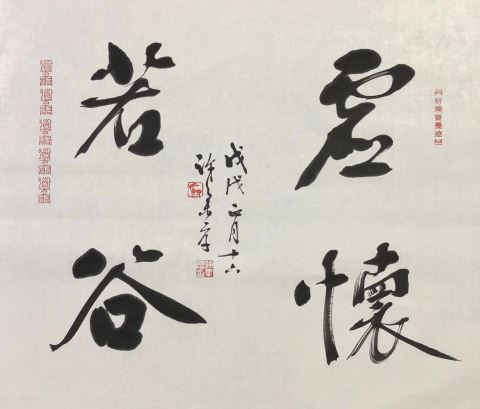 虛懷
若谷
戊戌正月十六